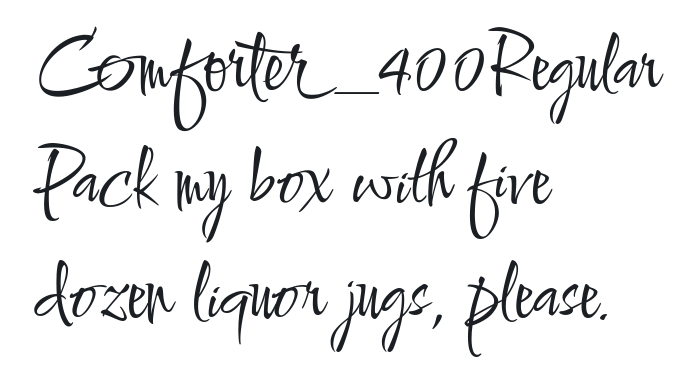 Comforter_400Regular
Pack my box with five
dozen liquor jugs, please.